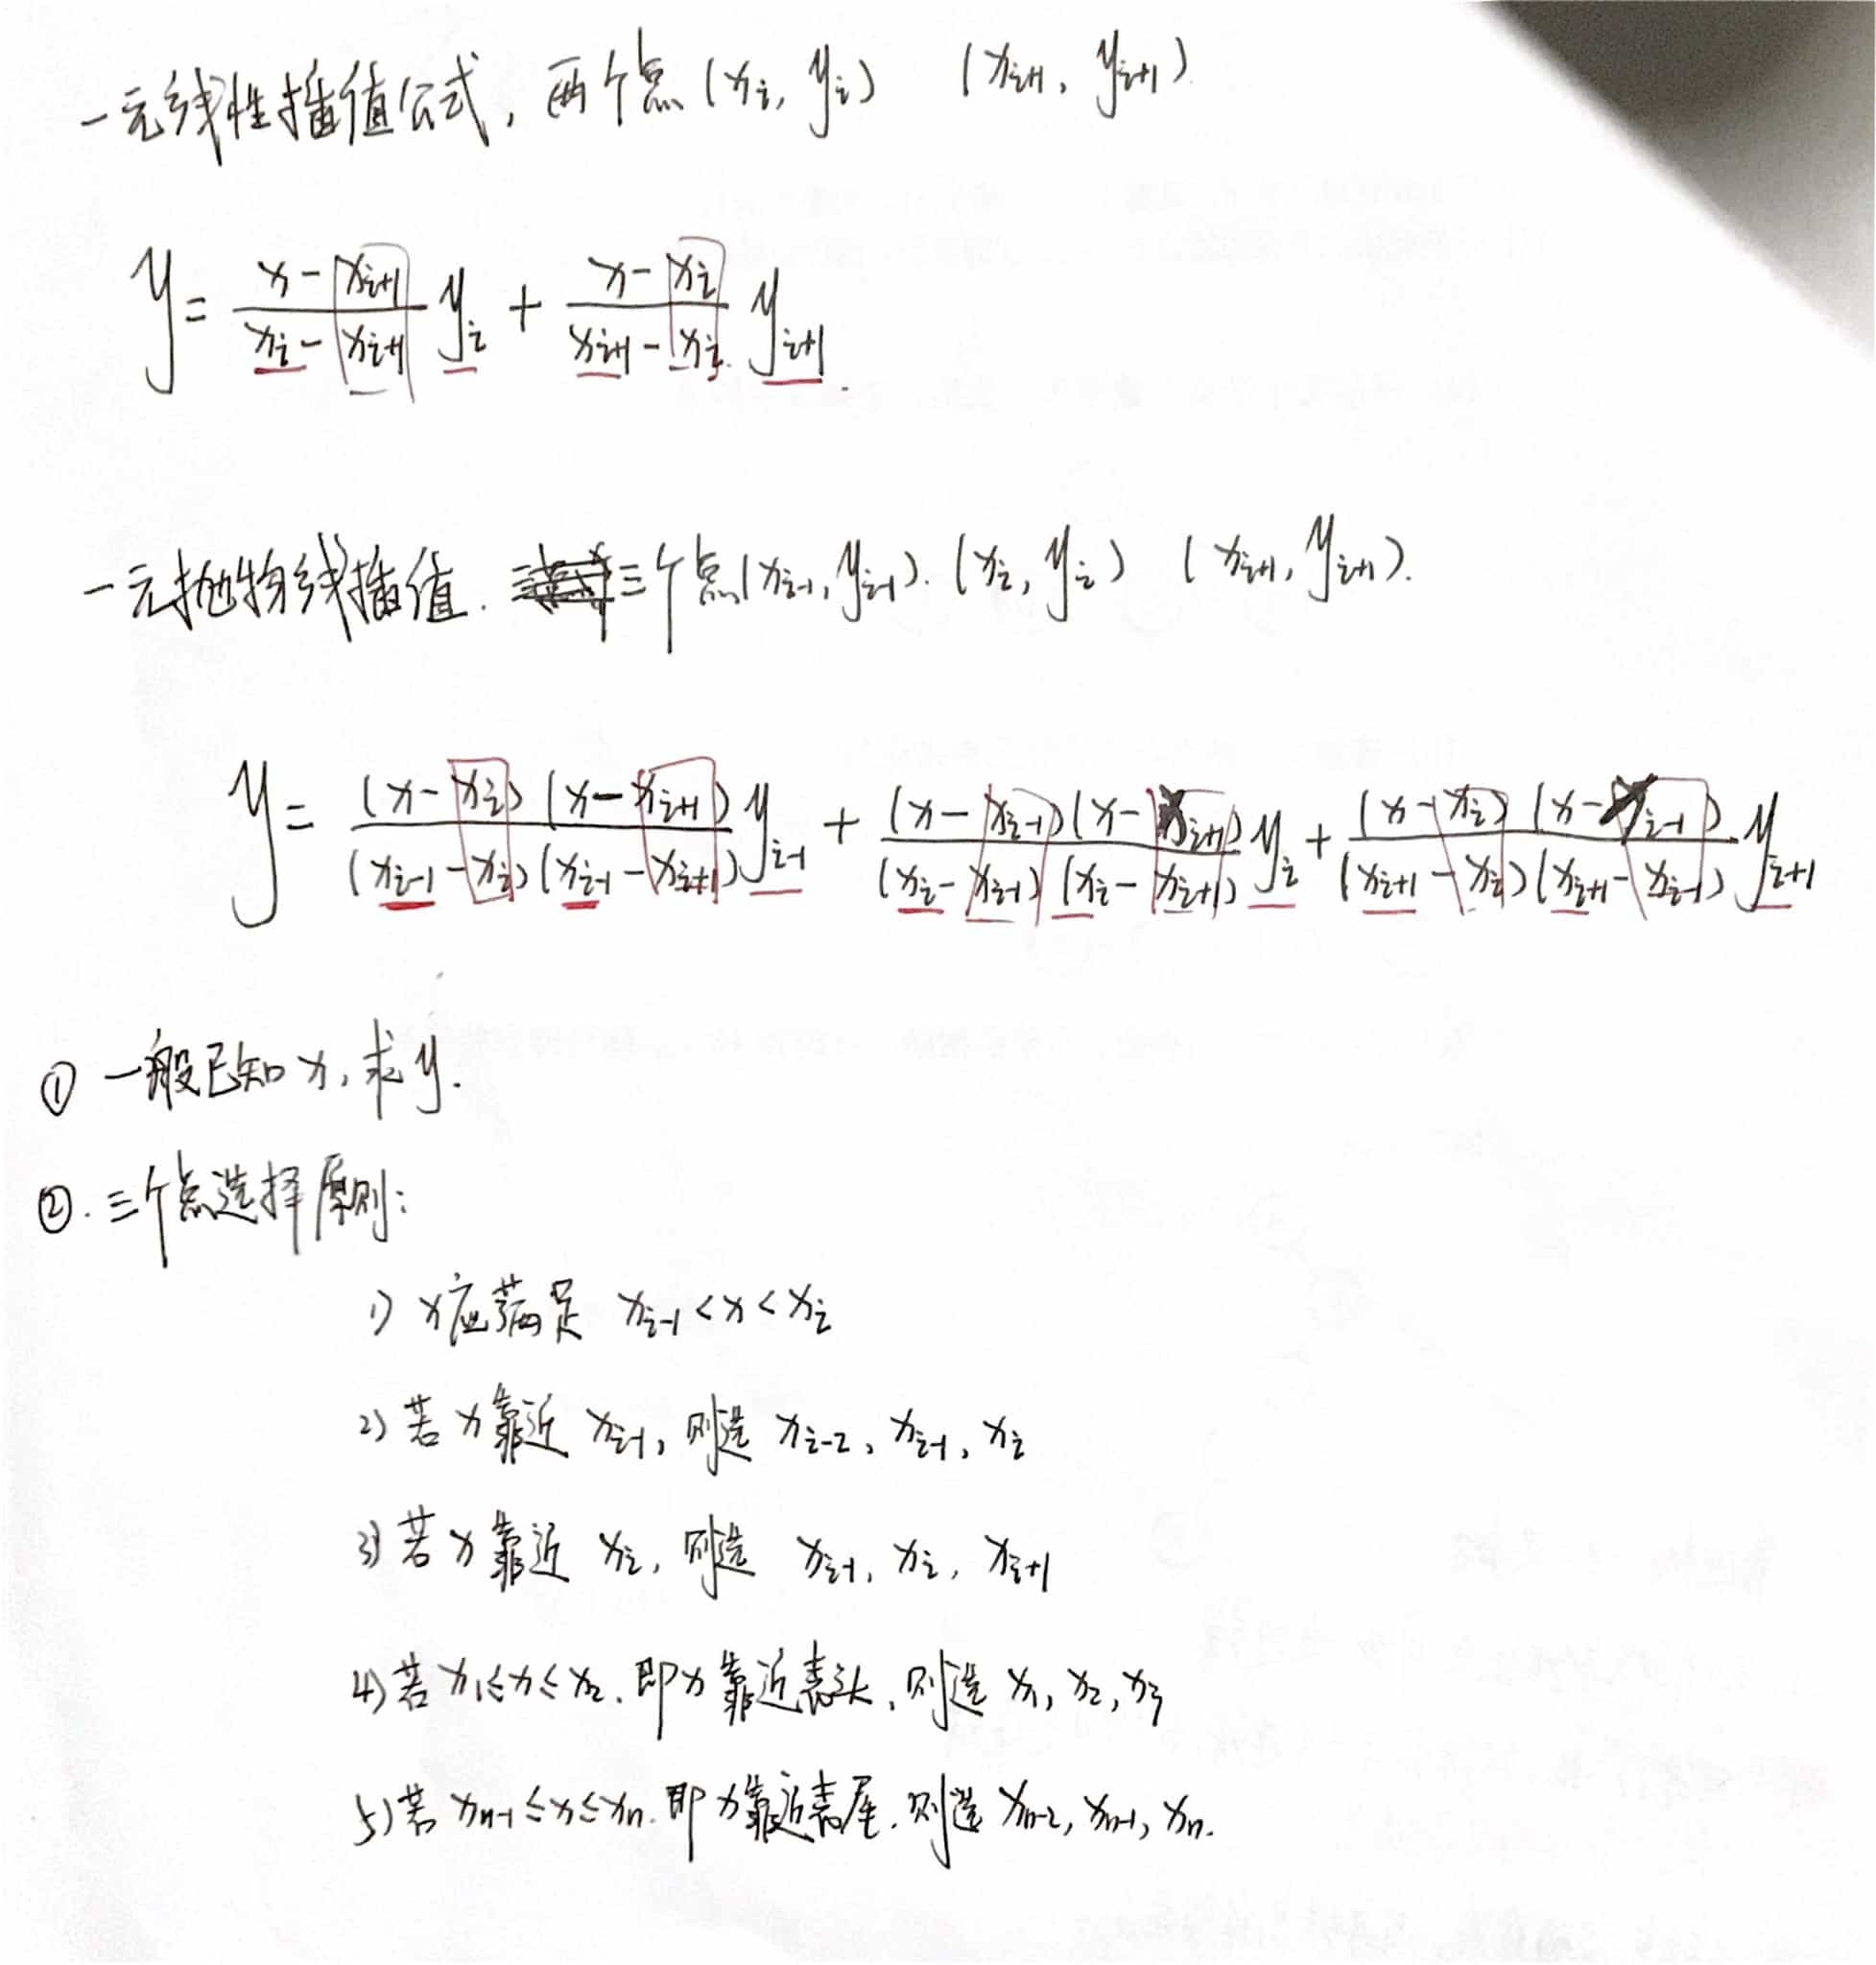 一元线性插值公式，两个点 (x_i, y_i) (x_{i+1}, y_{i+1})
y = \frac{x - x_{i+1}}{x_i - x_{i+1}} y_i + \frac{x - x_i}{x_{i+1} - x_i} y_{i+1}.
一元抛物线插值. 三个点(x_{i-1}, y_{i-1}). (x_i, y_i) (x_{i+1}, y_{i+1}).
y = \frac{(x - x_i)(x - x_{i+1})}{(x_{i-1} - x_i)(x_{i-1} - x_{i+1})} y_{i-1} + \frac{(x - x_{i-1})(x - x_{i+1})}{(x_i - x_{i-1})(x_i - x_{i+1})} y_i + \frac{(x - x_i)(x - x_{i-1})}{(x_{i+1} - x_i)(x_{i+1} - x_{i-1})} y_{i+1}
① 一般已知 x, 求 y.
②. 三个点选择原则:
1) x应满足 x_{i-1} < x < x_i
2) 若 x 靠近 x_{i-1}, 则选 x_{i-2}, x_{i-1}, x_i
3) 若 x 靠近 x_i, 则选 x_{i-1}, x_i, x_{i+1}
4) 若 x_1 ≤ x ≤ x_2, 即 x 靠近表头, 则选 x_1, x_2, x_3
5) 若 x_{n-1} ≤ x ≤ x_n. 即 x 靠近表尾. 则选 x_{n-2}, x_{n-1}, x_n.